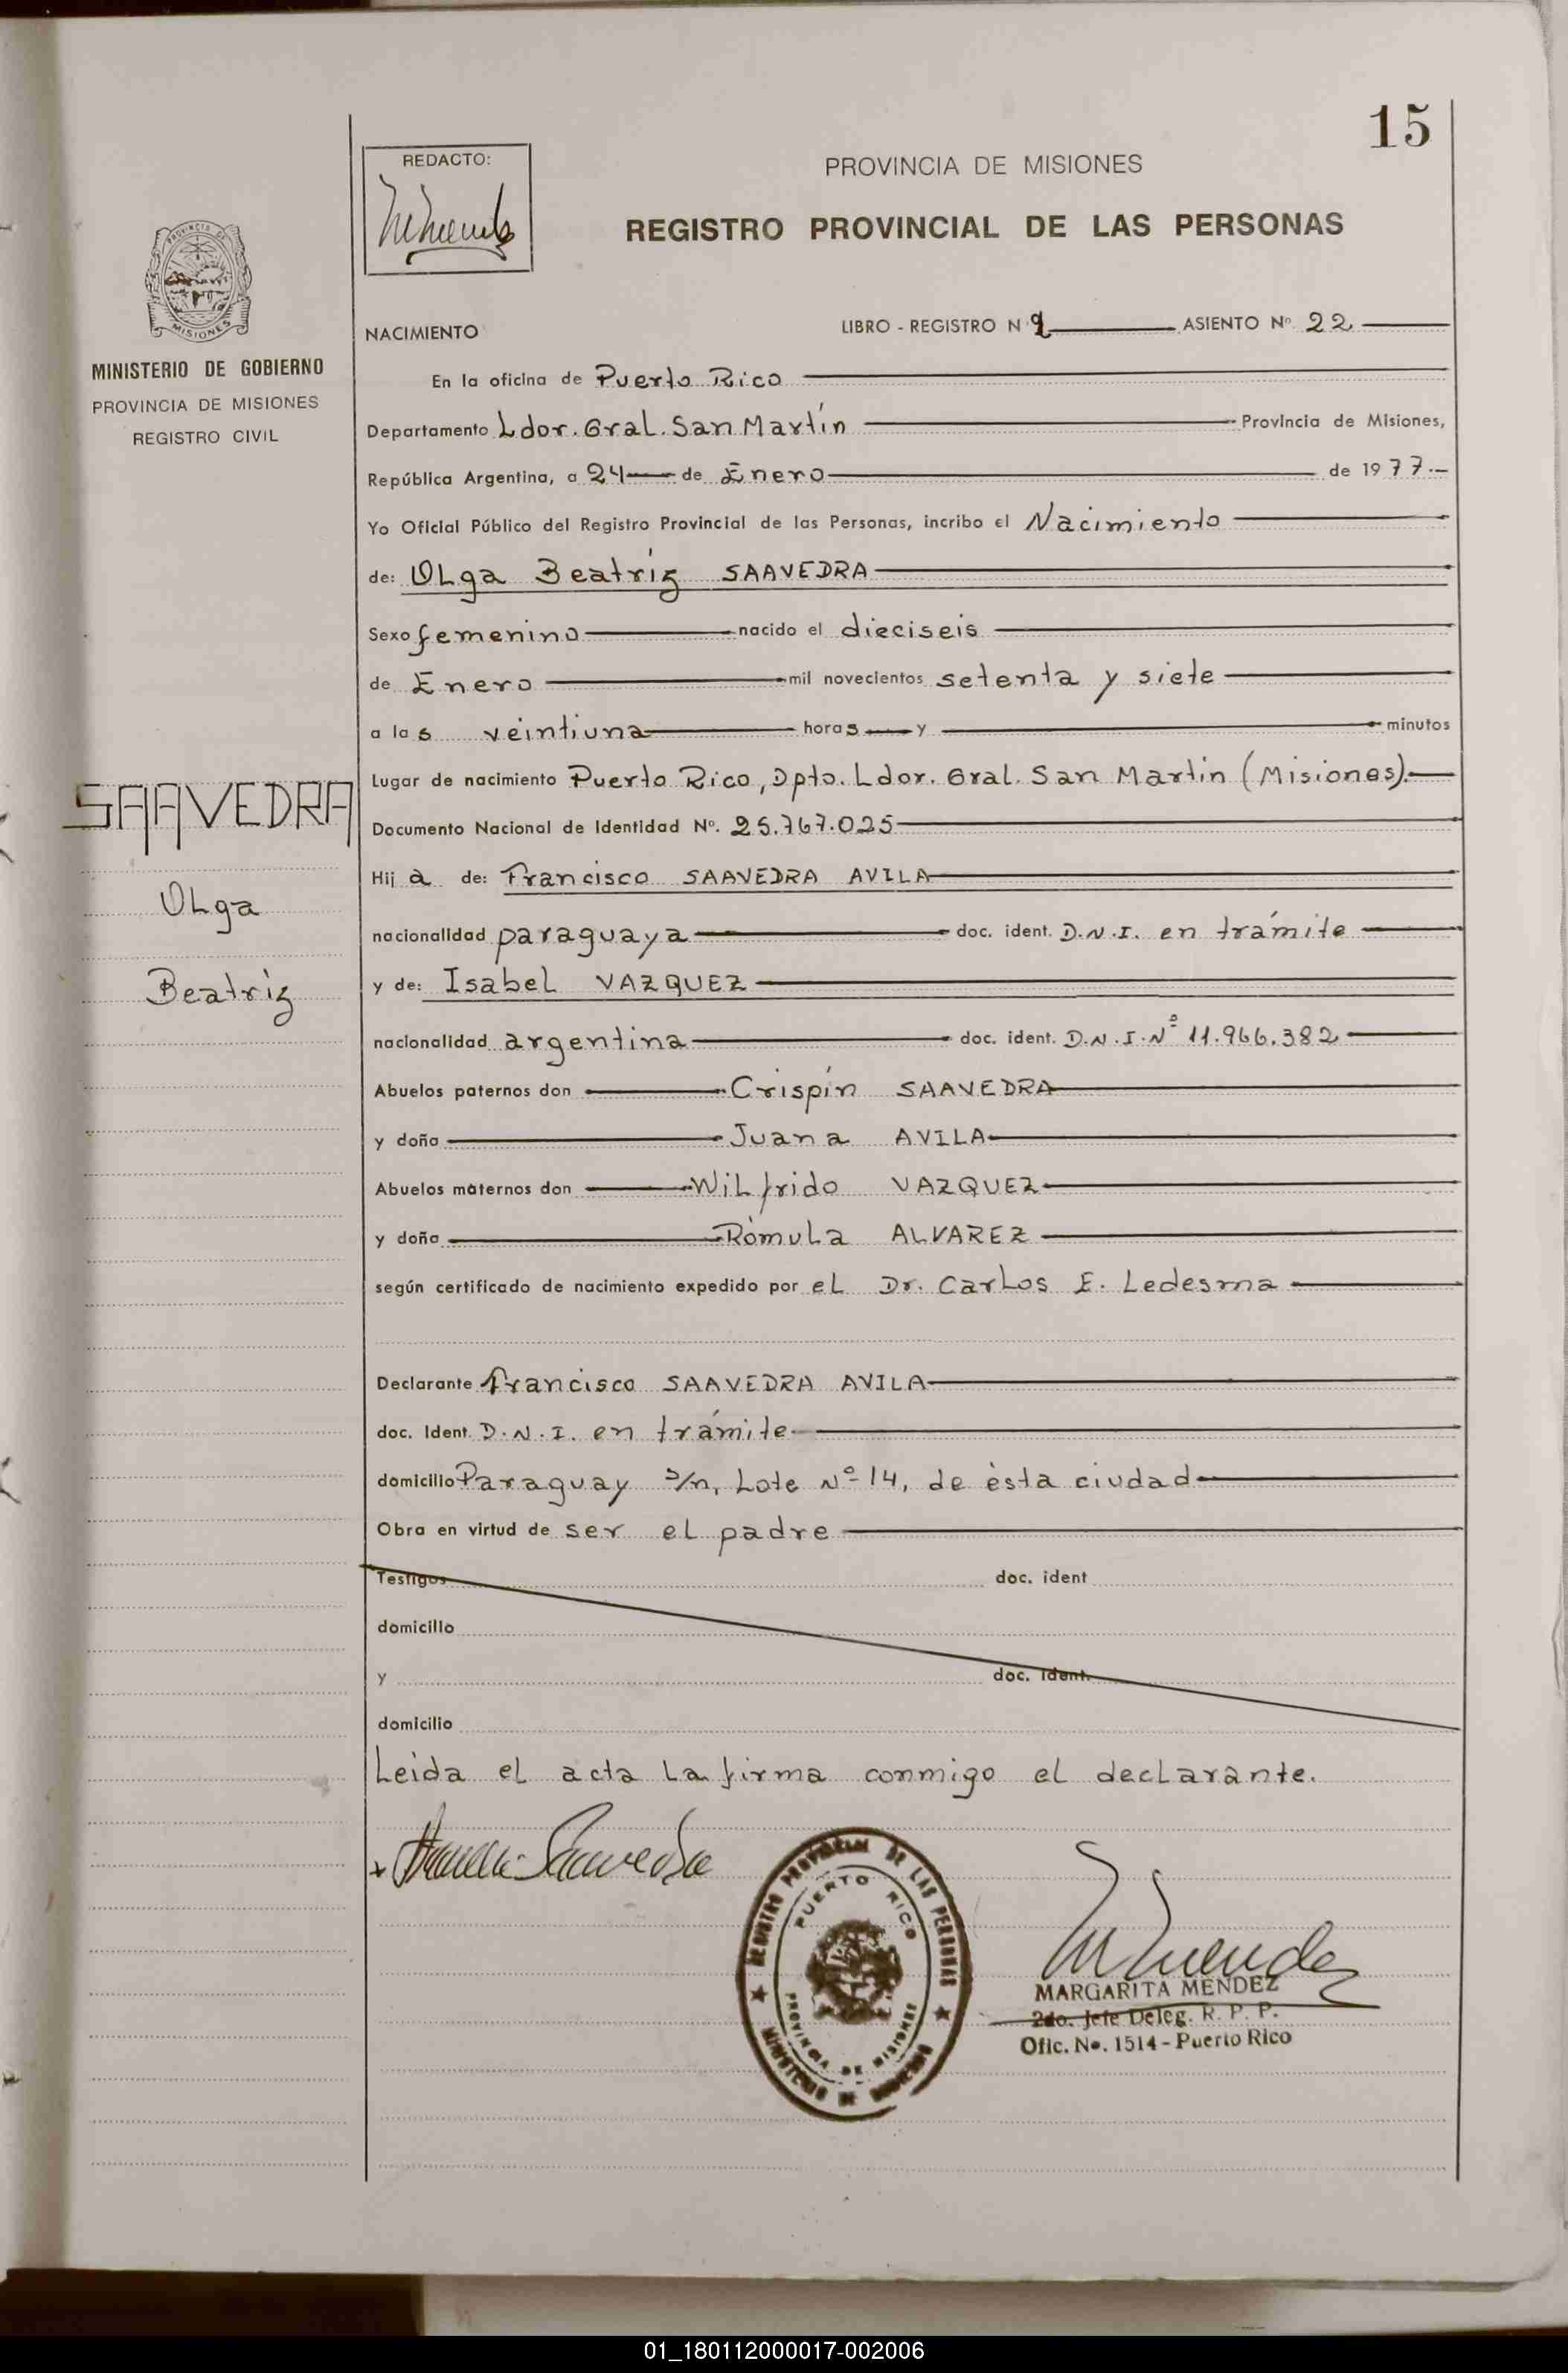 15
REDACTO:
PROVINCIA DE MISIONES
REGISTRO PROVINCIAL DE LAS PERSONAS
MISIONES
MINISTERIO DE GOBIERNO
PROVINCIA DE MISIONES
REGISTRO CIVIL
NACIMIENTO LIBRO - REGISTRO Nº 1 ASIENTO Nº 22
En la oficina de Puerto Rico
Departamento Ldor. Gral. San Martín Provincia de Misiones,
República Argentina, a 24 de Enero de 1977.-
Yo Oficial Público del Registro Provincial de las Personas, incribo el Nacimiento
de: Olga Beatríz SAAVEDRA
Sexo femenino nacido el dieciseis
de Enero mil novecientos setenta y siete
a las veintiuna horas y minutos
Lugar de nacimiento Puerto Rico, Dpto. Ldor. Gral. San Martín (Misiones).
Documento Nacional de Identidad Nº. 25.767.025
Hij a de: Francisco SAAVEDRA AVILA
nacionalidad paraguaya doc. ident. D.N.I. en trámite
y de: Isabel VAZQUEZ
nacionalidad argentina doc. ident. D.N.I.Nº 11.966.382
Abuelos paternos don Crispín SAAVEDRA
y doña Juana AVILA
Abuelos maternos don Wilfrido VAZQUEZ
y doña Rómula ALVAREZ
según certificado de nacimiento expedido por el Dr. Carlos E. Ledesma
Declarante Francisco SAAVEDRA AVILA
doc. Ident. D.N.I. en trámite
domicilio Paraguay s/n, Lote Nº 14, de ésta ciudad
Obra en virtud de ser el padre
Testigos doc. ident
domicilio
y doc. ident.
domicilio
Leída el acta la firma conmigo el declarante.
SAAVEDRA
Olga
Beatríz
Saavedra
REGISTRO PROVINCIAL DE LAS PERSONAS
PUERTO RICO
PROVINCIA DE MISIONES
MINISTERIO DE GOBIERNO
MARGARITA MENDEZ
2do. Jefe Deleg. R. P. P.
Ofic. No. 1514 - Puerto Rico
01_180112000017-002006